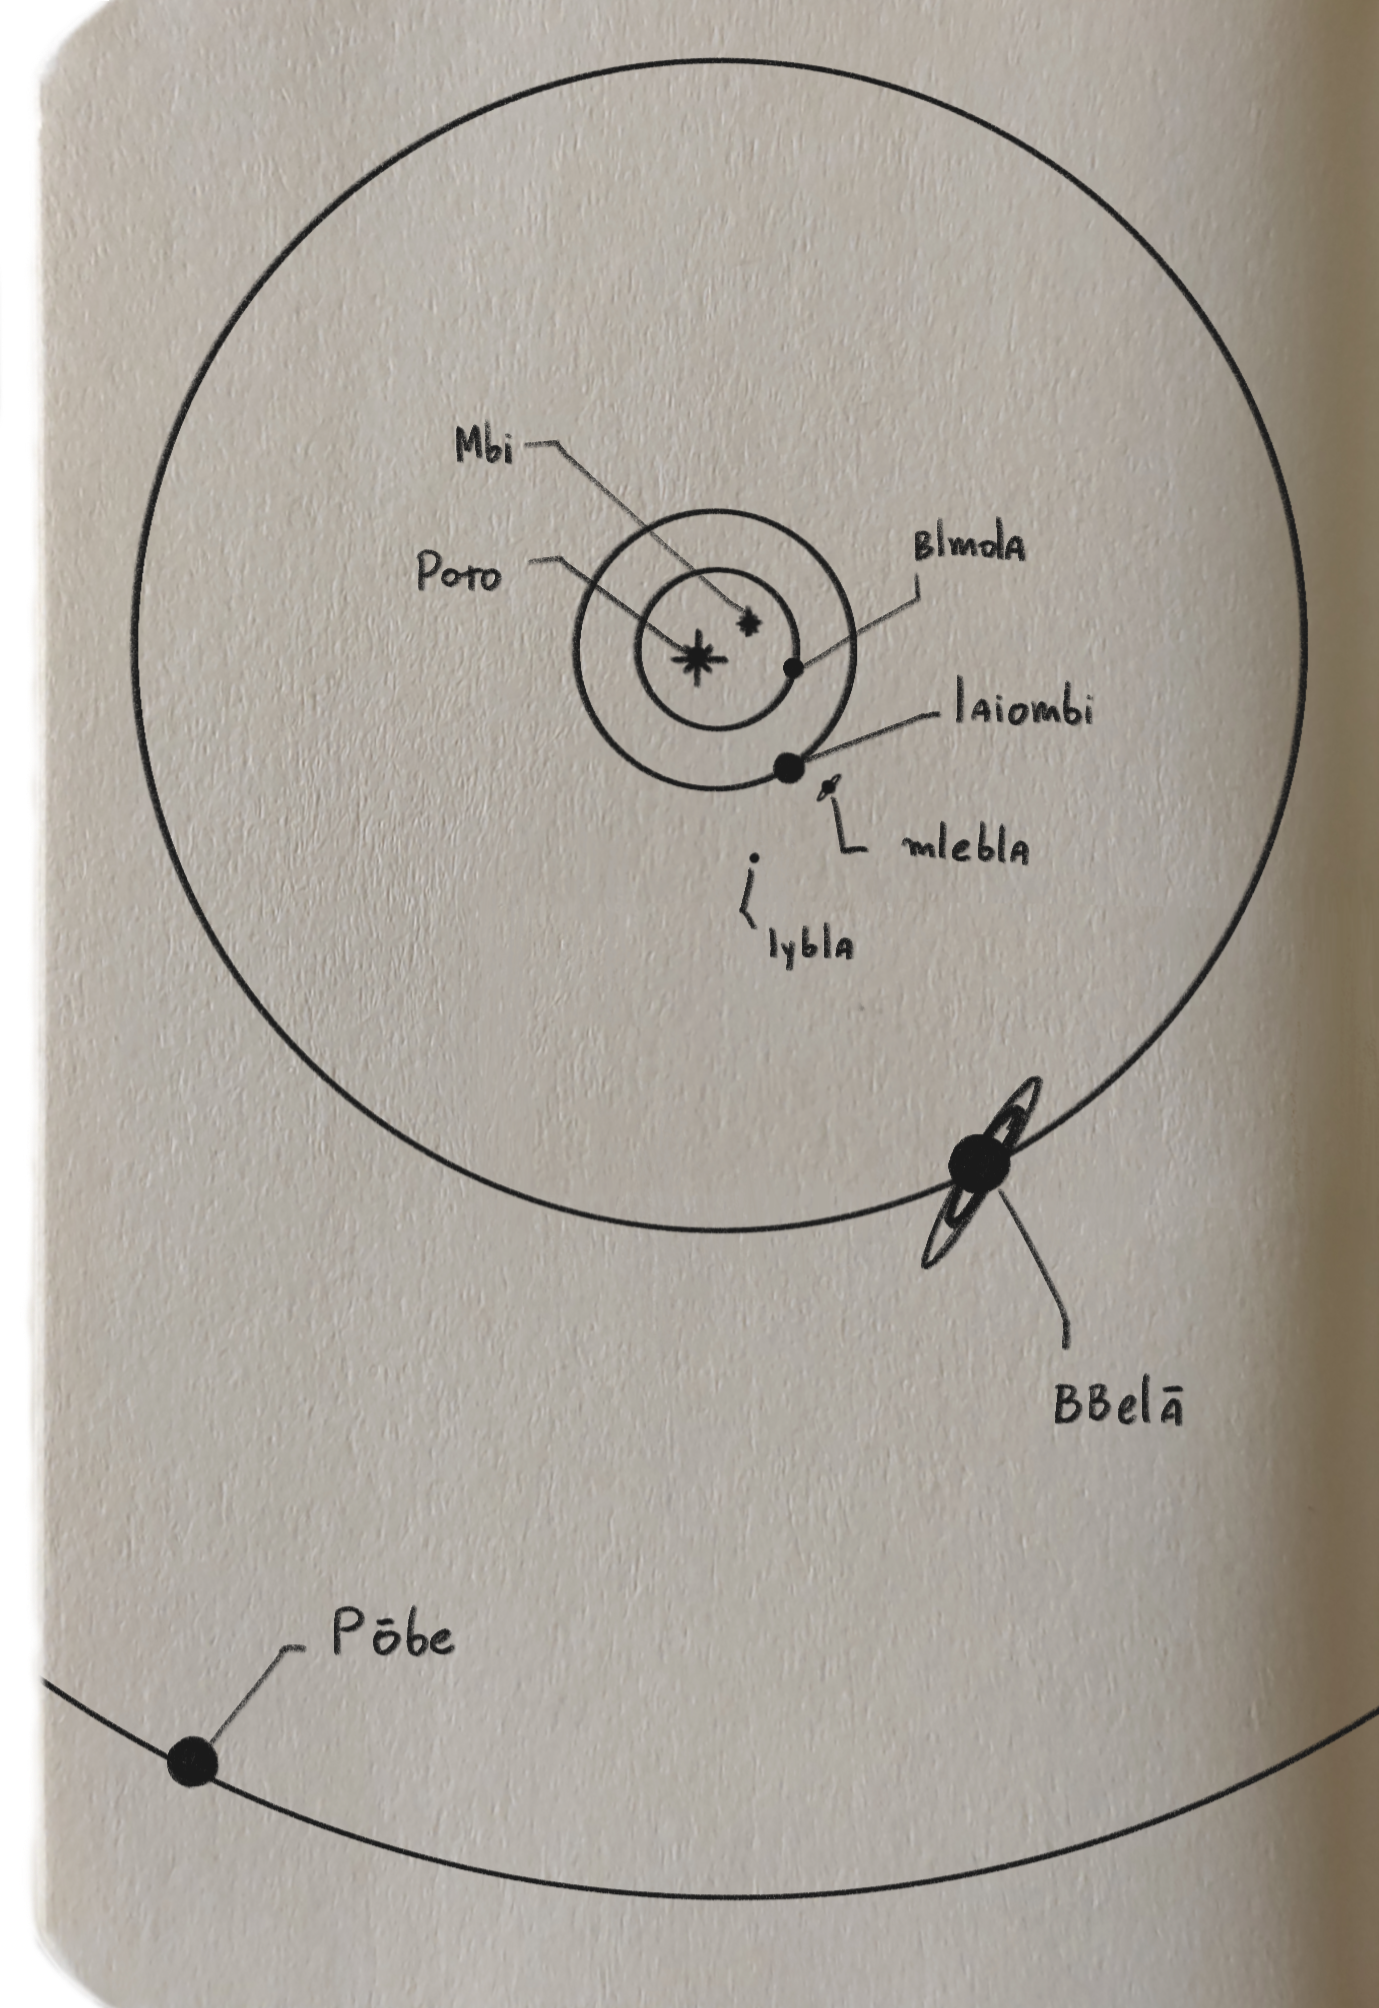 Mbi
Poto
Blmola
laiombi
mlebla
lybla
BBelā
Pōbe